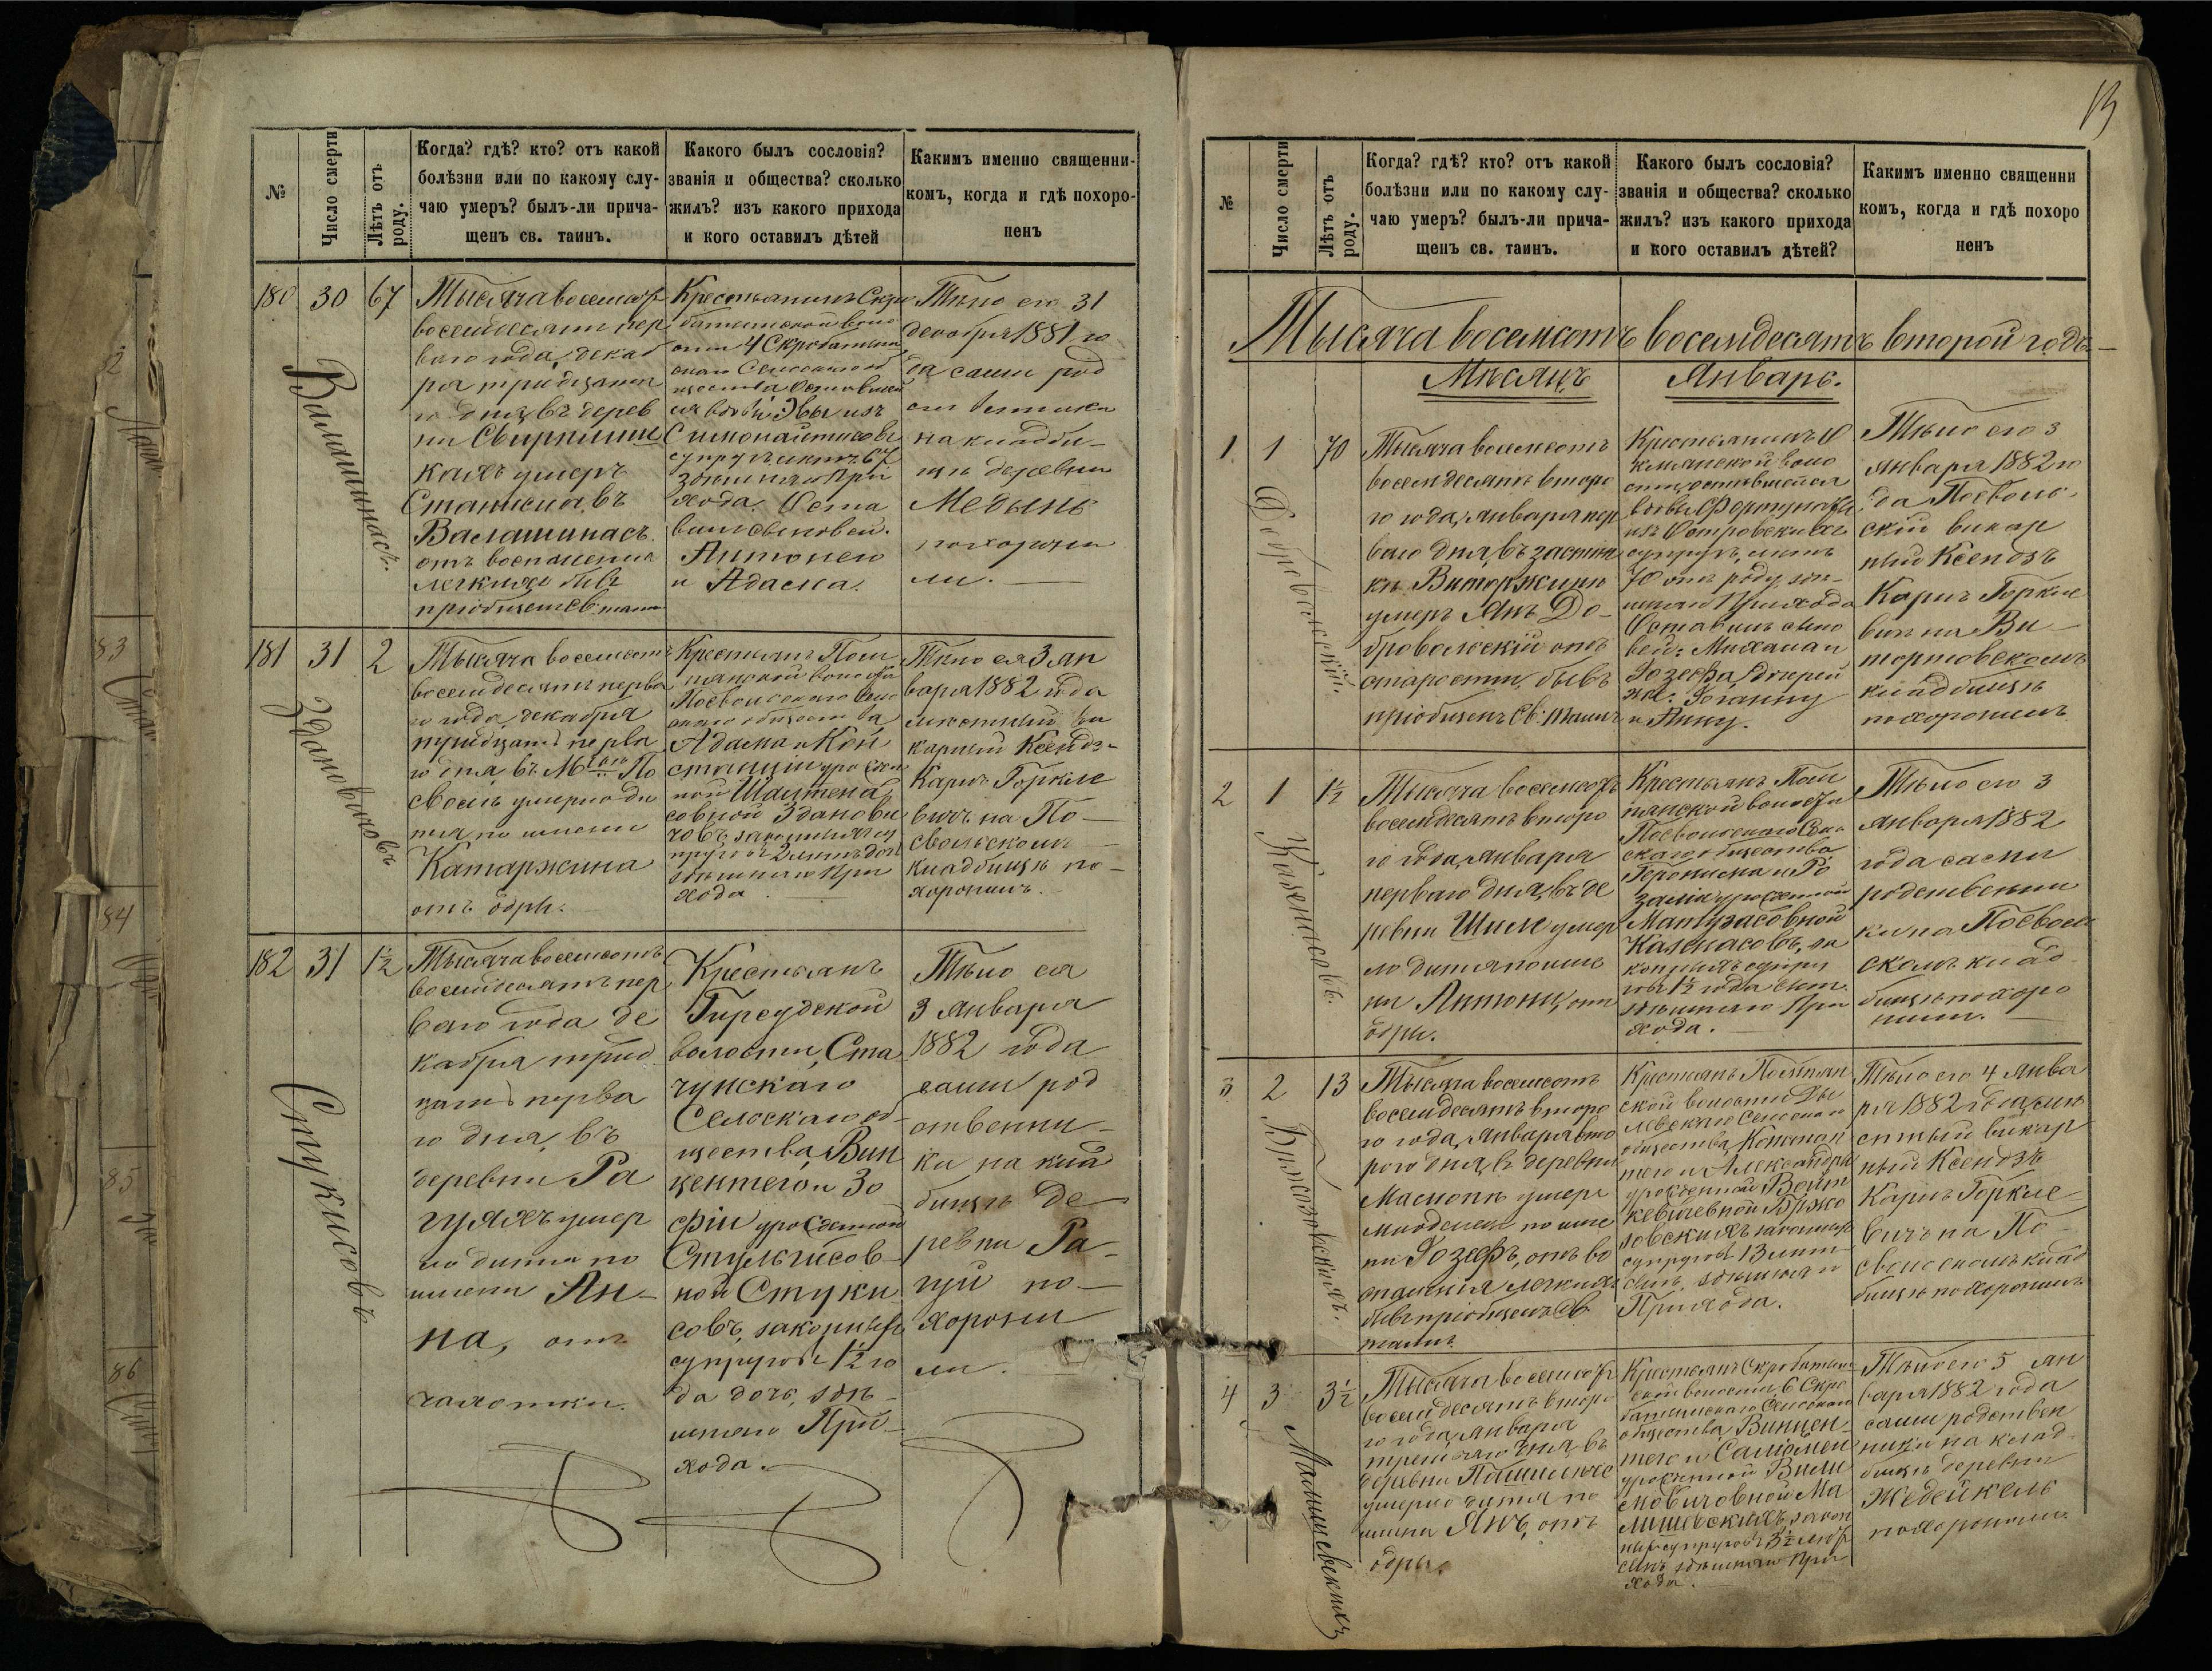 №
Число смерти
Лѣтъ отъ
роду.
Когда? гдѣ? кто? отъ какой
болѣзни или по какому слу-
чаю умеръ? былъ-ли прича-
щенъ св. таинъ.
Какого былъ сословія?
званія и общества? сколько
жилъ? изъ какого прихода
и кого оставилъ дѣтей
Какимъ именно священни-
комъ, когда и гдѣ похоро-
ненъ
180
30
67
Валашинасъ.
Тысяча восемсотъ
восемдесятъ пер
ваго года, декаб
ря тридцата
го дня, въ дерев
ни Свирплиш
кахъ умеръ
Станиславъ
Валашинасъ.
отъ воспаленія
легкихъ бывъ
пріобщенъ Св. таинъ
Крестьянинъ Скро
батишской воло
сти 4 Скробатишс
каго Сельскаго об
щества
вдовы Эвы изъ
супругъ лѣтъ 67
здѣшняго При
хода. Оста
вилъ сыновей.
Антонея
и Адама.
Тѣло его 31
декабря 1881 го
да сами род
ственники
на кладби-
щѣ деревни
Медынь
похорони
ли.
181
31
2
Здановичовъ
Тысяча восемсотъ
восемдесятъ перва
го года, декабря
тридцать перва
го дня, въ М По
сволѣ умерло ди
тя по имени
Катаржина
отъ одры.
Крестьянъ Пом
пянской волости
Посвольскаго Сель
скаго общества
Адама и Кон
станціи урожден
ной
совной Зданови
човъ, законныхъ су
пруговъ 2 лѣтъ дочь
здѣшняго При
хода.
Тѣло ея 3 ян
варя 1882 года
мѣстный ви
карный Ксендзъ
Карлъ Горкле
вичъ на По-
свольскомъ
кладбищѣ по-
хоронилъ.
182
31
1½
Стукисовъ
Тысяча восемсотъ
восемдесятъ пер
ваго года де
кабря трид
цать перва
го дня, въ
деревни Ра
гуляхъ умер
ло дитя по
имени Ан-
на, отъ
чахотки.
Крестьянъ
Гирсудской
волости, Ста
чунскаго
Сельскаго об-
щества, Вин
центего и Зо
фіи урожденной
Стульгисов-
ной Стуки
совъ, законныхъ
супруговъ 1½ го
да дочь, здѣ-
шняго При-
хода.
Тѣло ея
3 Января
1882 года
сами род
ственни-
ки на клад
бищѣ де-
ревни Ра-
гуй по-
хорони
ли.
13
№
Число смерти
Лѣтъ отъ
роду.
Когда? гдѣ? кто? отъ какой
болѣзни или по какому слу-
чаю умеръ? былъ-ли прича-
щенъ св. таинъ.
Какого былъ сословія?
званія и общества? сколько
жилъ? изъ какого прихода
и кого оставилъ дѣтей?
Какимъ именно священни
комъ, когда и гдѣ похоро
ненъ
Тысяча восемсотъ восемдесятъ второй годъ
Мѣсяцъ Январь.
1
1
70
Добровольскій.
Тысяча восемсотъ
восемдесятъ второ
го года, января пер
ваго дня, въ застѣн
кѣ Виторжишкѣ
умеръ Янъ До-
бровольскій отъ
старости, бывъ
пріобщенъ Св. Таинъ
Крестьянинъ
волости
вдовы Фортунаты
изъ Островскихъ
супругъ, лѣтъ
70 отъ роду, здѣ-
шняго Прихода
Оставилъ сыно
вей: Михаила и
Іозефа, дочерей
Іоганну
и Анну.
Тѣло его 3
января 1882 го
да Посволь-
скій викар
ный Ксендзъ
Карлъ Горкле
вичъ на Ви-
торговскомъ
кладбищѣ
похоронилъ.
2
1
1½
Кажемасовъ.
Тысяча восемсотъ
восемдесятъ второ
го года, января
перваго дня, въ де
ревни Шиле умер
ло дитя по име
ни Антони, отъ
одры.
Крестьянъ Пом
пянской волости
Посвольскаго Сель
скаго общества
Геронима и Ро
заліи урожденной
Матузасовной
законныхъ супру
говъ 1½ года сынъ.
здѣшняго При
хода.
Тѣло его 3
января 1882
года сами
родственни
ки на Посволь
скомъ клад
бищѣ похоро
нили.
3
2
13
Бржозовскихъ.
Тысяча восемсотъ
восемдесятъ второ
го года, января вто
рого дня, въ деревни
умеръ
младенецъ по име
ни Іозефъ, отъ во
спаленія легкихъ
бывъ пріобщенъ Св.
таинъ.
Крестьянъ Помпян
ской волости
Сельскаго
общества, Констан
тего и Александры
урожденной Войт
кевичевной Бржо
зовскихъ законныхъ
супруговъ 13 лѣтъ
сынъ, здѣшняго
Прихода.
Тѣло его 4 янва
ря 1882 года, мѣ
стный викар
ный Ксендзъ
Карлъ Горкле-
вичъ на По-
свольскомъ клад
бищѣ похоронилъ
4
3
3½
Малышевскихъ
Тысяча восемсотъ
восемдесятъ второ
го года, января
третьяго дня, въ
деревни
умерло дитя по
имени Янъ, отъ
одры.
Крестьянъ Скробатиш
ской волости 6 Скро
батишскаго Сельскаго
общества Винцен-
тего и Саломеи
урожденной Вили
мовичовной Ма
лишевскихъ, закон
ныхъ супруговъ 3½ лѣтъ
сынъ здѣшняго При
хода.
Тѣло его 5 ян
варя 1882 года
сами родствен
ники на клад-
бищѣ деревни
Жедейкель
похоронили.